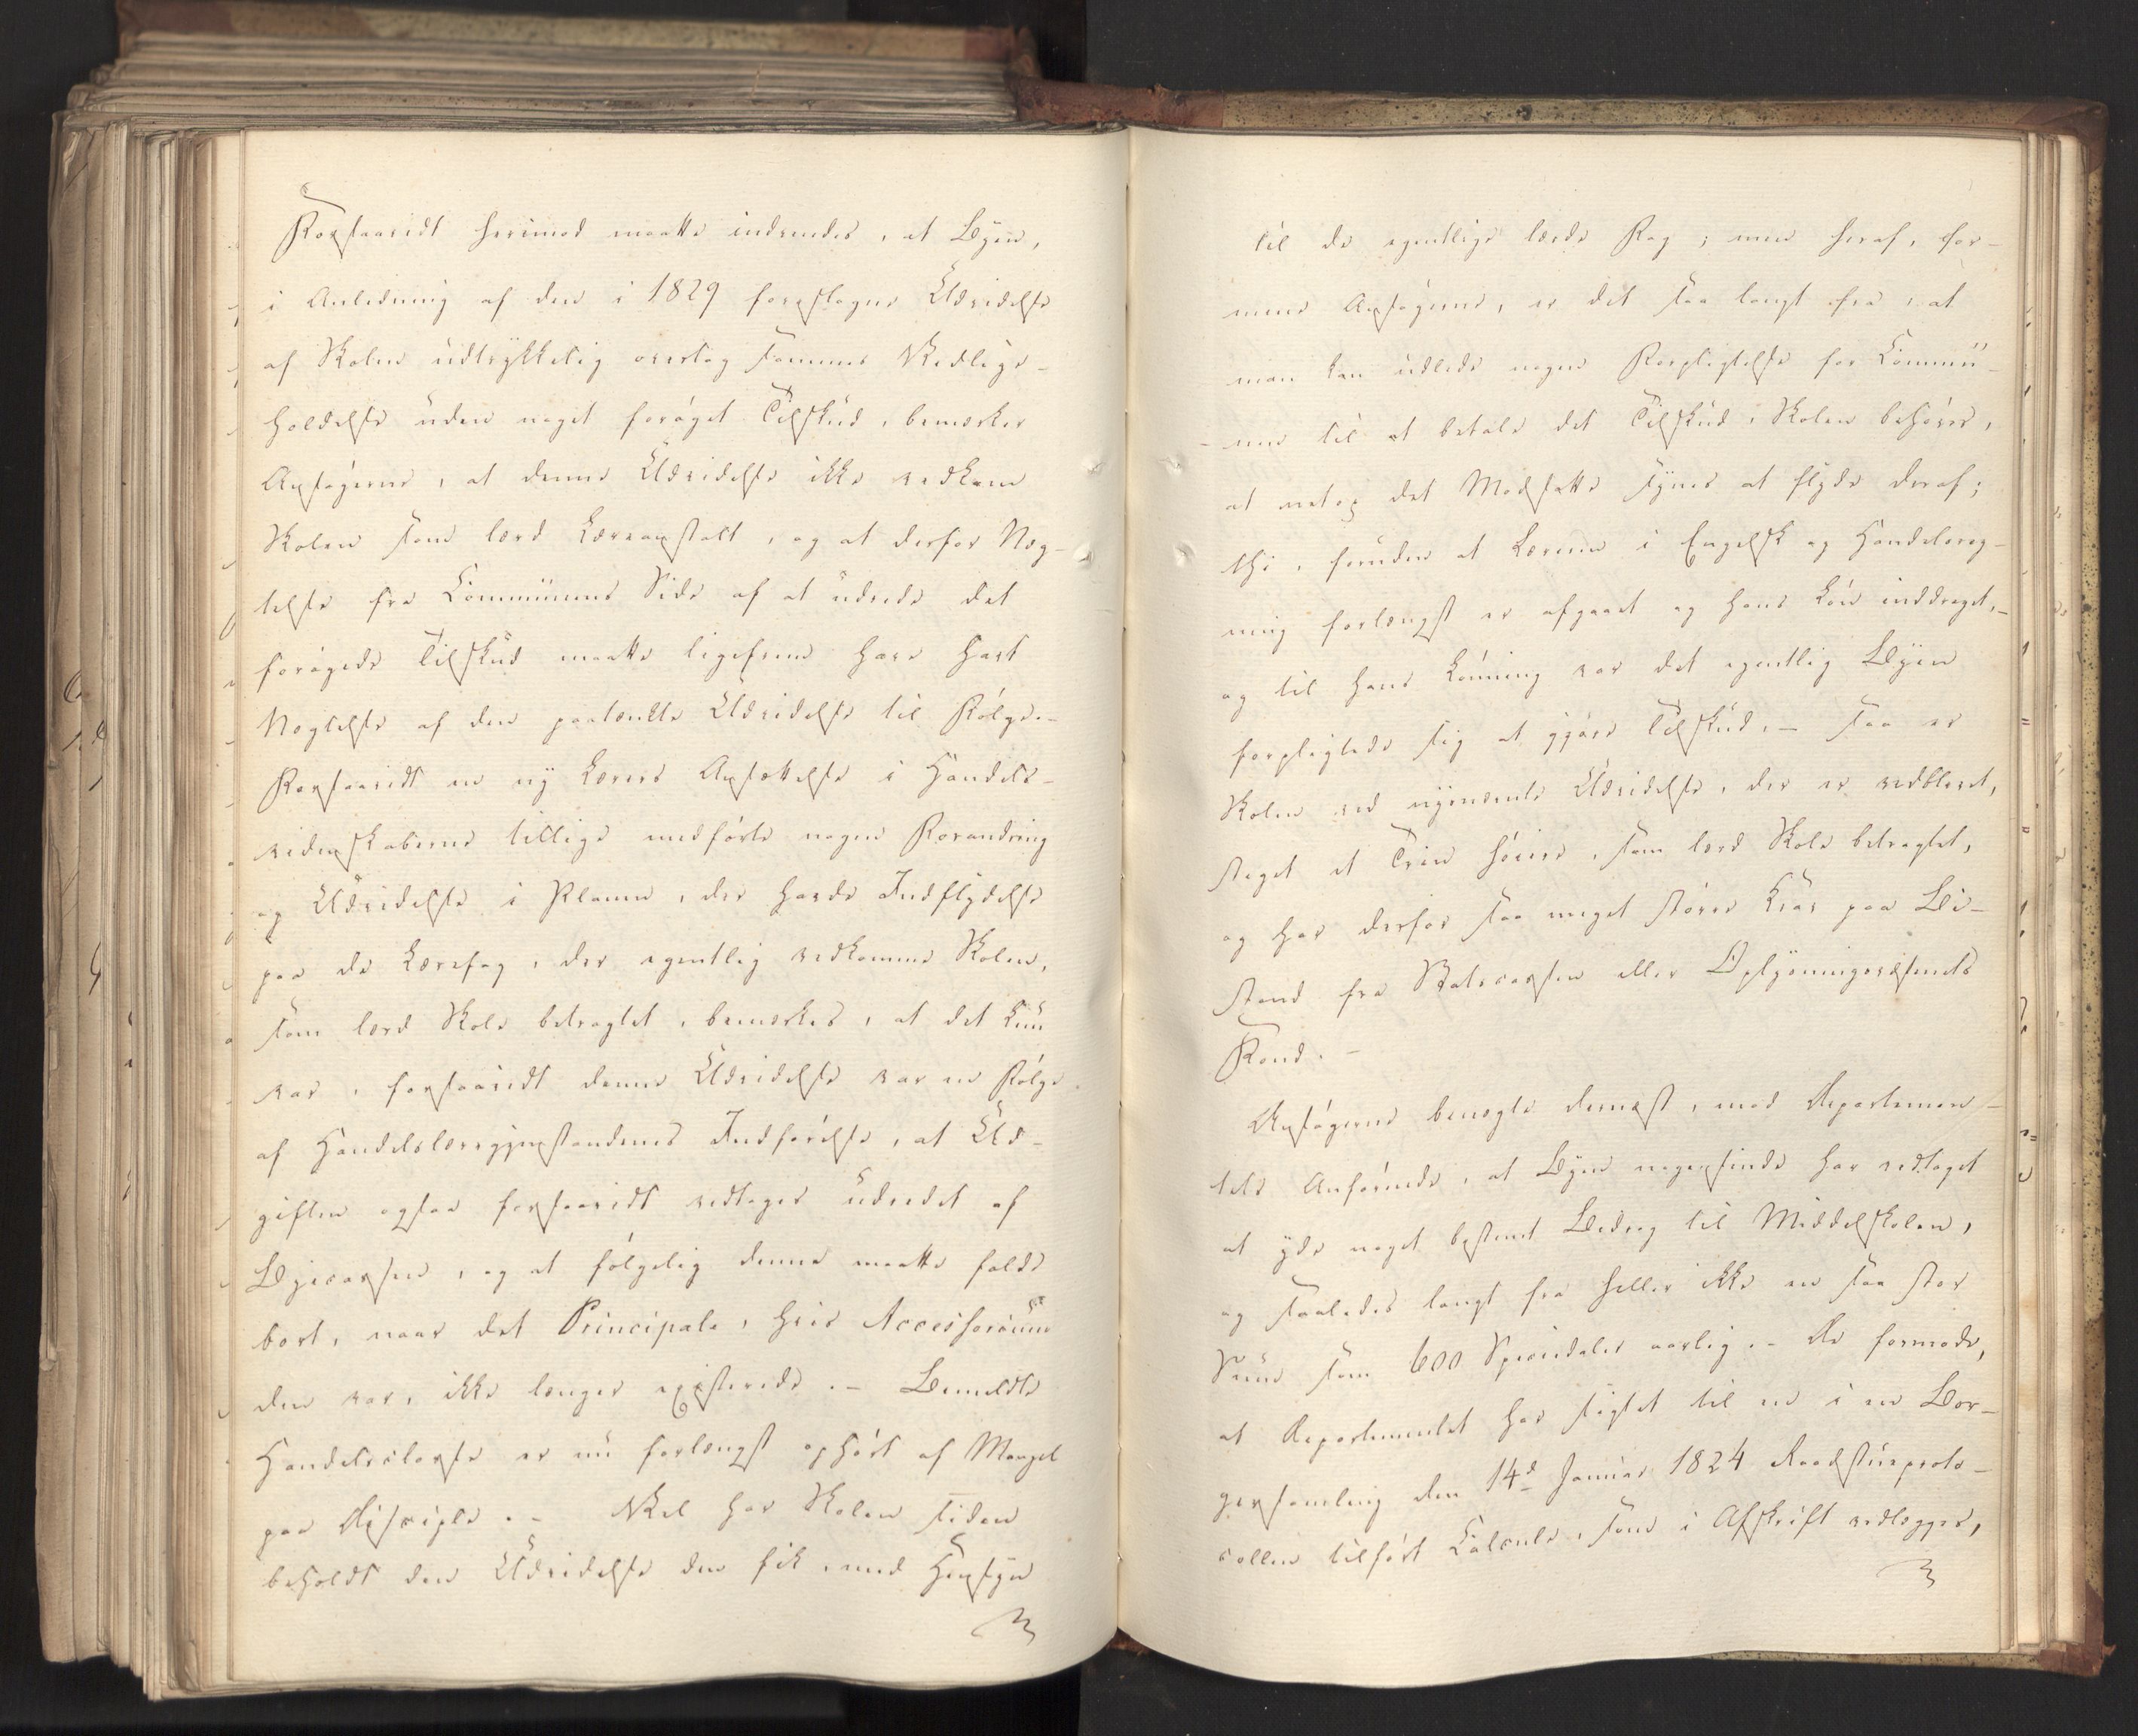 Forsaavidt herimod maatte indvendes, at Byen,
i Anledning af den i 1829 foreslagne Udvidelse
af Skolen udtrykkelig overtog sammes Vedlige-
holdelse uden noget forøget Tilskud, bemærker
Ansøgerne, at denne Udvidelse ikke vedkom
Skolen som lærd Læreanstalt, og at derfor Næg-
telse fra Communens Side af at udrede det
forøgede Tilskud maatte ligefrem have havt
Nægtelse af den paatænkte Udvidelse til Følge.-
Forsaavidt en ny Lærers Ansættelse i Handels-
videnskaberne tillige medførte nogen Forandring
og Udvidelse i Planen, der havde Indflydelse
paa de Lærefag, der egentlig vedkomme Skolen,
som lærd Skole betragtet, bemærkes, at det kun
var, forsaavidt denne Udvidelse var en Følge
af Handelslæregjenstandenes Indførelse, at Ud-
giften ogsaa forsaavidt vedtoges udredet af
Byecassen, og at følgelig denne maatte falde
bort, naar det Principale, hvis Accessorium
den var, ikke længer existerede.- Bemeldte
Handelsclasse er nu forlængst ophørt af Mangel
paa Disciple.- Vel har Skolen siden
beholdt den Udvidelse den fik, med Hensyn
til de egentlige lærde Fag; men heraf, for-
mene Ansøgerne, er det saa langt fra, at
man kan udlede nogen Forpligtelse for Commu-
nen til at betale det Tilskud, Skolen behøver,
at netop det Modsatte synes at flyde deraf;
thi, foruden at Læreren i Engelsk og Handelsreg-
ning forlængst er afgaaet og hans Løn inddraget,-
og til hans Lønning var det egentlig Byen
forpligtede sig at gjøre Tilskud,- saa er
Skolen ved nysnævnte Udvidelse, der er vedblevet,
steget et Trin høiere, som lærd Skole betragtet,
og har derfor saa meget større Krav paa Bi-
stand fra Statscassen eller Oplysningsvæsenets
Fond.-
Ansøgerne benægte dernæst, mod Departemen-
tets Anførende, at Byen nogensinde har vedtaget
at yde noget bestemt Bidrag til Middelskolen,
og saaledes langt fra heller ikke en saa stor
Sum som 600 Speciedaler aarlig.- De formode,
at Departementet har sigtet til en i en Bor-
gersamling den 14d Januar 1824 Raadstueproto-
collen tilført Calcule, som i Afskrift vedlægges,